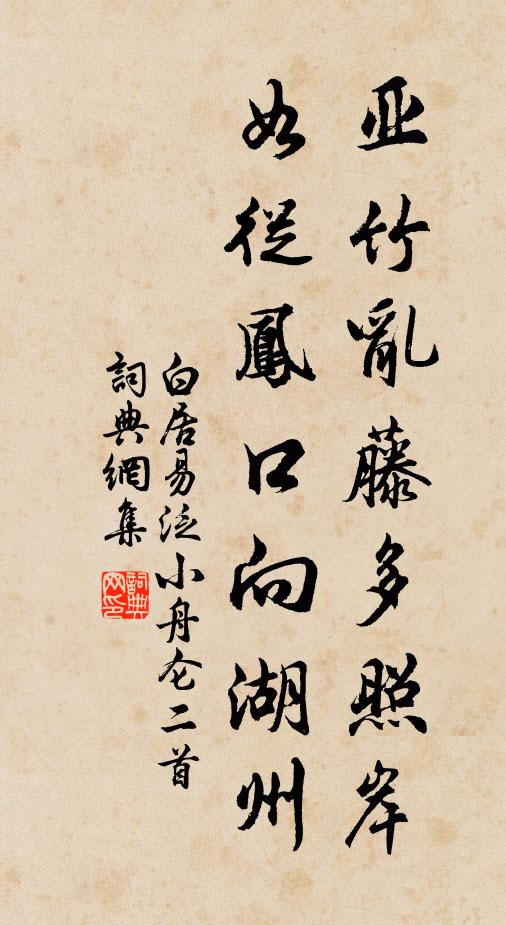 亚竹亂藤多照岸
如從鳳口向湖州
白居易泛小舟仑二首
詞典網集
詞典网印